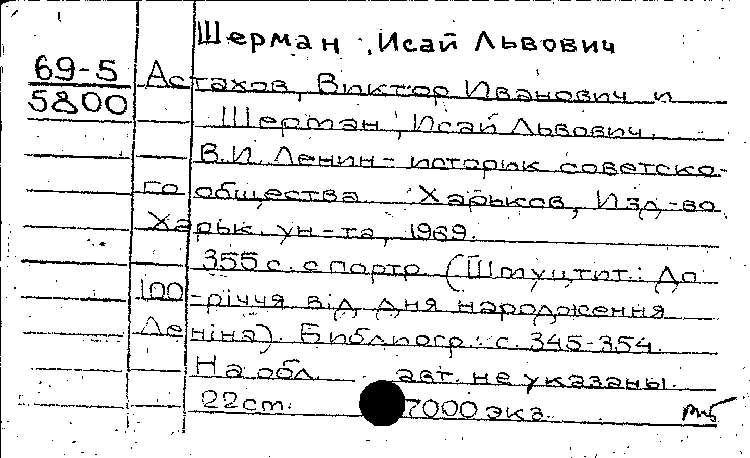 Шерман, Исай Львович
69-5
5800
Астахов, Виктор Иванович и
Шерман, Исай Львович.
В.И. Ленин - историк советско-
го общества Харьков, Изд-во
Харьк. ун-та, 1969.
355 с. с портр. (Шмуцтит.: До
100-річчя від дня народження
Леніна). Библиогр.: с. 345-354.
На обл. авт. не указаны.
22 см. 7000 экз.